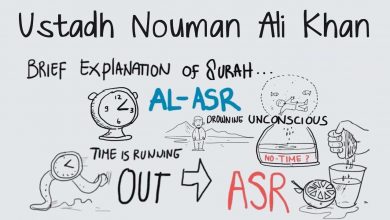 Ustadh Nouman Ali Khan
BRIEF EXPLANATION OF SURAH...
AL-ASR
DROWNING UNCONSCIOUS
TIME IS RUNNING
OUT
NO-TIME?
ASR